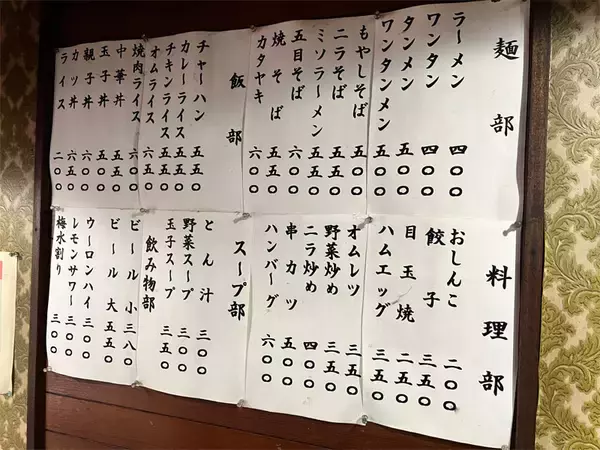 麺部
ラーメン 四〇〇
ワンタン 四〇〇
タンメン 五五〇
ワンタンメン 五五〇
もやしそば 五五〇
ニラそば 五五〇
ミソラーメン 五五〇
五目そば 六〇〇
焼そば 五五〇
カタヤキ 六〇〇
飯部
チャーハン 五五〇
カレーライス 五五〇
チキンライス 五五〇
オムライス 六五〇
焼肉ライス 六〇〇
中華丼 五五〇
玉子丼 五五〇
親子丼 六〇〇
カツ丼 六五〇
ライス 二〇〇
料理部
おしんこ 二〇〇
餃子 三五〇
目玉焼 二五〇
ハムエッグ 三五〇
オムレツ 三五〇
野菜炒め 三五〇
ニラ炒め 四〇〇
串カツ 五〇〇
ハンバーグ 六〇〇
スープ部
とん汁 三〇〇
野菜スープ 三〇〇
玉子スープ 三五〇
飲み物部
ビール 小 三八〇
ビール 大 五五〇
ウーロンハイ 三〇〇
レモンサワー 三〇〇
梅水割り 三〇〇